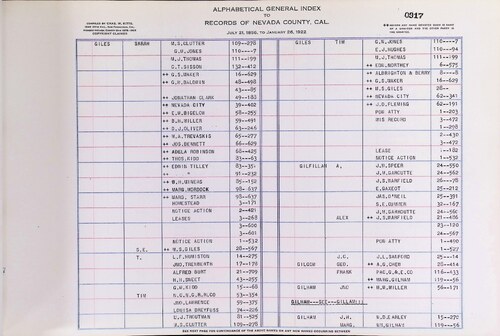 ALPHABETICAL GENERAL INDEX
TO
RECORDS OF NEVADA COUNTY, CAL.
JULY 21, 1856, TO JANUARY 26, 1922
0317
GILES SARAH M.S. CLUTTER 109--276 GILES TIM G.H. JONES 110----7
G.H. JONES 110----7 E.J. HUGHES 110---94
M.J. THOMAS 111--199 M.J. THOMAS 111--199
C.T. SISSON 132--412 C.T. SISSON 132--412
++ G.S. BAKER 16--629 ++ ALBRIGHTON & BERRY
++ G.H. BALDWIN 48--498 ++ G.S. BAKER 16--629
43---85 ++ M.S. GILES 28--
++ JONATHAN CLARK 49--183 ++ NEVADA CITY 62--341
++ NEVADA CITY 39--402 ++ J.D. FLEMING 62--191
++ E.W. BIGELOW 58--255 POW ATTY 1--203
++ B.H. MILLER 59--491 MIS RECORD 3--472
++ S.J. OLIVER 63--246 1--298
++ W.A. TREVASKIS 65--277 2--430
++ JOS. BENNETT 66--629 3--472
++ ADELA ROBINSON 68--425 LEASE
++ THOS. KIDD NOTICE ACTION 1--532
++ EDWIN TILLEY GILFILLAN A. J.H. SPEER 24--550
91--232 J.M. GARCUTTE 24--562
++ W.H. WINERS 95--150 J.S. BARFIELD 26--78
++ MARG. MURDOCK 98--637 E. GAXEOT 25--212
++ MARG. STARR 98--637 JAS. O'NEIL 25--391
HOMESTEAD 3--171 S.E. CURRER 32--167
NOTICE ACTION 2--421 J.M. GARNOUTTE 24--560
LEASES 3--268 ALEX ++ J.S. BARFIELD 21--486
3--600
3--601 24--567
NOTICE ACTION 1--532 POW ATTY 1--400
S.E. ++ M.S. GILES 28--567
T. L.F. HUMISTON 14--275 J.C. J.L. SANFORD 25--14
JNO. TRENMORTH 17--178 GILGOR GEO. ++ A.G. CHEW 28--414
ALFRED BURT 21--709 FRANK PAC. G. & E. CO 116--633
H.H. SWEET ++ MARG. GILHAM 119--56
G.W. KIDD 15---68 GILHAM JNO ++ W.W. MILLER 56--171
TIM N.C.N.G.R.R. CO 53--354
JNO. LAWRENCE 59--375 GILHAM---SEE---GILLAM(L)
LOUISA DREYFUSS
U.J. TROUTMAN 81--295 GILHAM J.H. B.D. EARLEY 15--270
M.S. CLUTTER 109--276 MARG. WM. GILHAM 119--56